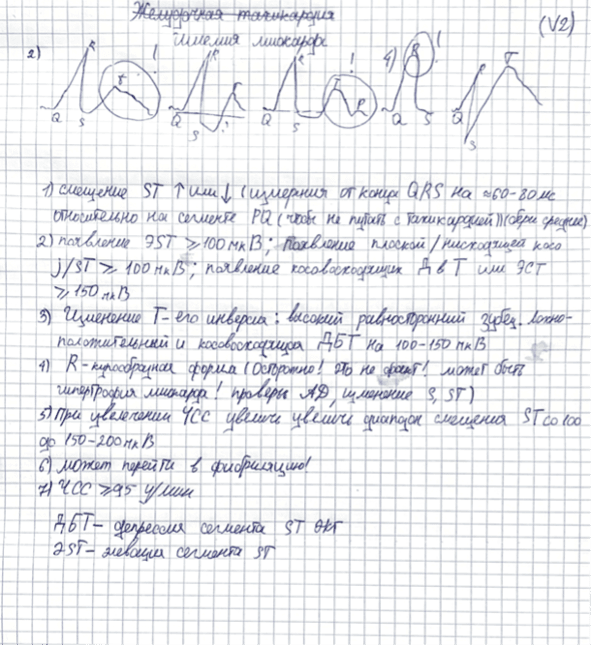 Желудочная тахикардия
Ишемия миокарда
(V2)
2)
R T !
R T
R !
4) R !
R T
Q S
Q
Q S R
Q S
Q S
1) смещение ST ↑ или ↓ (измерения от конца QRS на ≈60-80 мс
относительно на сегменте PQ (чтобы не путать с тахикардией))
2) появление ЭST ≥ 100 мкВ; появление плоской/нисходящей косо
j/ST ≥ 100 мкВ; появление косовосходящих Д в Т или ЭСТ
≥ 150 мкВ
3) Изменение Т- его инверсия: высокий равносторонний зубец. Ложно-
положительный и косовосходящая ДБТ на 100-150 мкВ
4) R - куполообразная форма (Осторожно! Это не факт! может быть
гипертрофия миокарда! проверь АД, изменение S, ST)
5) При увелечении ЧСС увелич увелич диапазон смещения ST со 100
до 150-200 мкВ
6) может перейти в фибриляцию!
7) ЧСС ≥ 95 у/мин
ДБТ - депрессия сегмента ST ЭКГ
ЭST - элевация сегмента ST